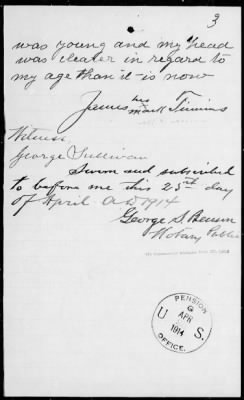 3
was young and my head
was clearer in regard to
my age than it is now
his
James Timins
mark
Witness
George Sullivan
Sworn and subscribed
to before me this 25th day
of April AD 1914
George S.
Notary Public
PENSION
G
APR
U S.
1914
OFFICE.